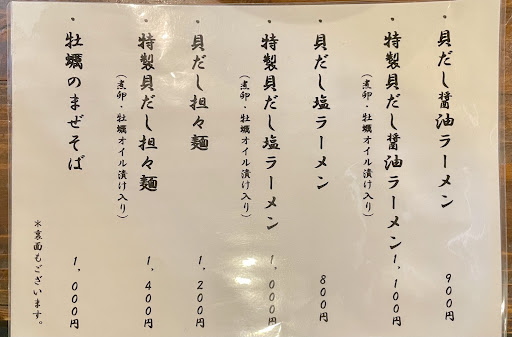 ・貝だし醤油ラーメン 900円
・特製貝だし醤油ラーメン 1,100円
（煮卵・牡蠣オイル漬け入り）
・貝だし塩ラーメン 800円
・特製貝だし塩ラーメン 1,000円
（煮卵・牡蠣オイル漬け入り）
・貝だし担々麺 1,200円
・特製貝だし担々麺 1,400円
（煮卵・牡蠣オイル漬け入り）
・牡蠣のまぜそば 1,000円
※裏面もございます。